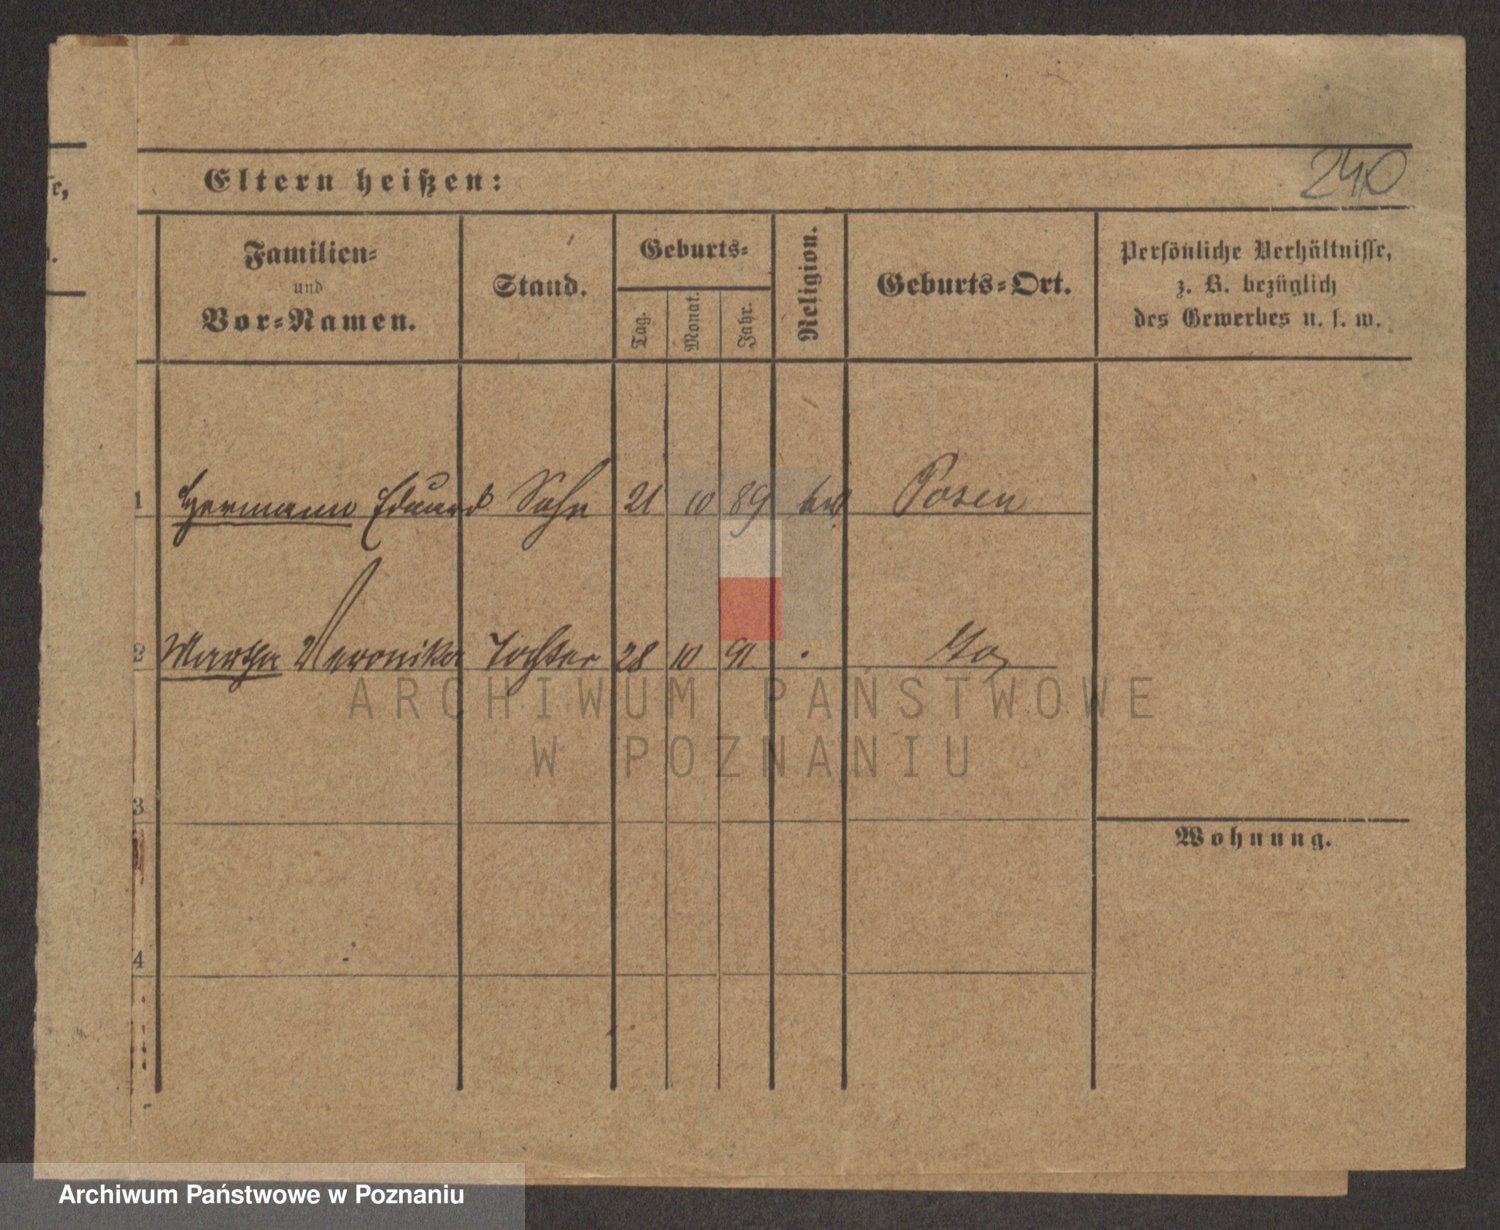 Eltern heißen:
240
Familien-
und
Vor-Namen.
Stand.
Geburts-
Tag.
Monat.
Jahr.
Religion.
Geburts-Ort.
Persönliche Verhältnisse,
z. B. bezüglich
des Gewerbes u. s. w.
1 Hermann Eduard Sohn 21 10 89 Posen
2 Martha Veronika Tochter 28 10 91
ARCHIWUM PAŃSTWOWE
W POZNANIU
3
Wohnung.
4
Archiwum Państwowe w Poznaniu